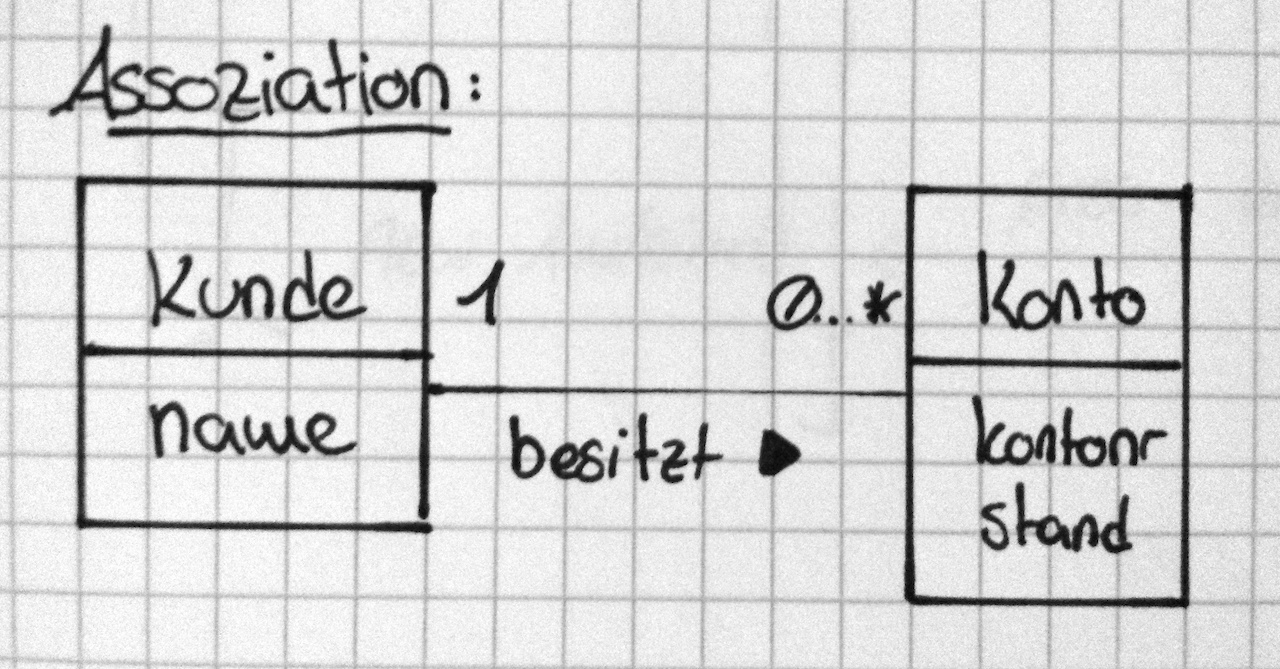 Assoziation:
Kunde
name
1
0...*
besitzt ▶
Konto
kontonr
stand